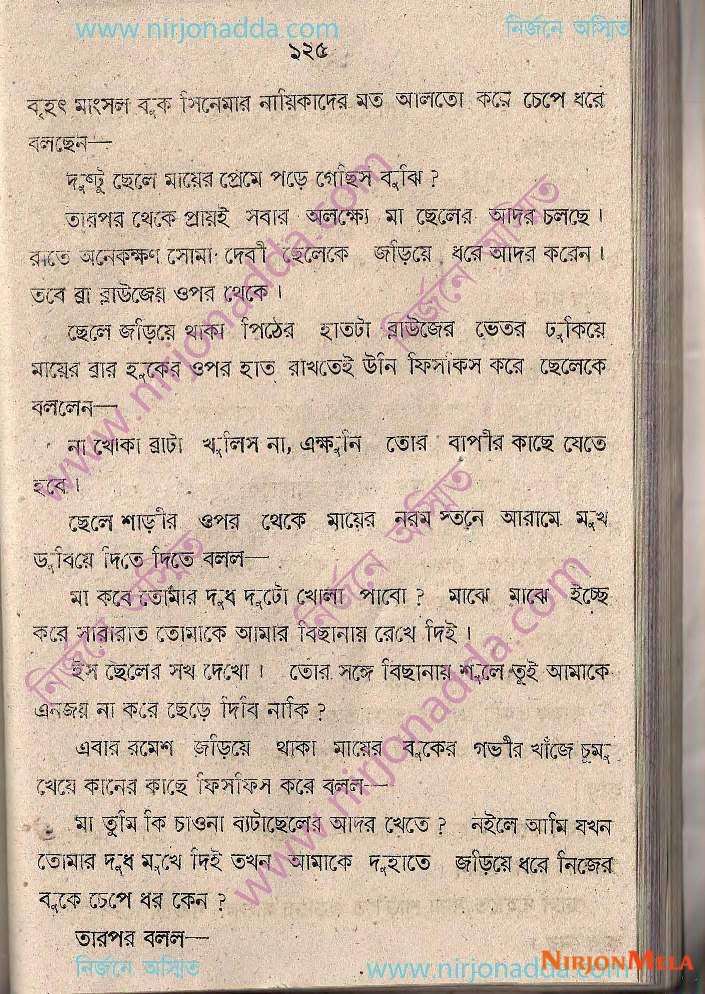 www.nirjonadda.com নির্জনে অস্মিত
১২৫
বৃহৎ মাংসল বুক সিনেমার নায়িকাদের মত আলতো করে চেপে ধরে
বলছেন—
দুষ্টু ছেলে মায়ের প্রেমে পড়ে গেছিস বুঝি ?
তারপর থেকে প্রায়ই সবার অলক্ষ্যে মা ছেলের আদর চলছে ।
রাতে অনেকক্ষণ সোমা দেবী ছেলেকে জড়িয়ে ধরে আদর করেন ।
তবে ব্রা ব্লাউজের ওপর থেকে ।
ছেলে জড়িয়ে থাকা পিঠের হাতটা ব্লাউজের ভেতর ঢুকিয়ে
মায়ের ব্রার হুকের ওপর হাত রাখতেই উনি ফিসফিস করে ছেলেকে
বললেন—
না খোকা ব্রাটা খুলিস না, এক্ষুনি তোর বাপীর কাছে যেতে
হবে ।
ছেলে শাড়ীর ওপর থেকে মায়ের নরম স্তনে আরামে মুখ
ডুবিয়ে দিতে দিতে বলল—
মা কবে তোমার দুধ দুটো খোলা পাবো ? মাঝে মাঝে ইচ্ছে
করে সারারাত তোমাকে আমার বিছানায় রেখে দিই ।
ইস ছেলের সখ দেখো । তোর সঙ্গে বিছানায় শুলে তুই আমাকে
এনজয় না করে ছেড়ে দিবি নাকি ?
এবার রমেশ জড়িয়ে থাকা মায়ের বুকের গভীর খাঁজে চুমু
খেয়ে কানের কাছে ফিসফিস করে বলল—
মা তুমি কি চাওনা ব্যটাছেলের আদর খেতে ? নইলে আমি যখন
তোমার দুধ মুখে দিই তখন আমাকে দুহাতে জড়িয়ে ধরে নিজের
বুকে চেপে ধর কেন ?
তারপর বলল—
নির্জনে অস্মিত www.nirjonadda.com
NIRJONMELA
www.nirjonadda.com
নির্জনে অস্মিত
নির্জনে অস্মিত
নির্জনে অস্মিত
www.nirjonadda.com